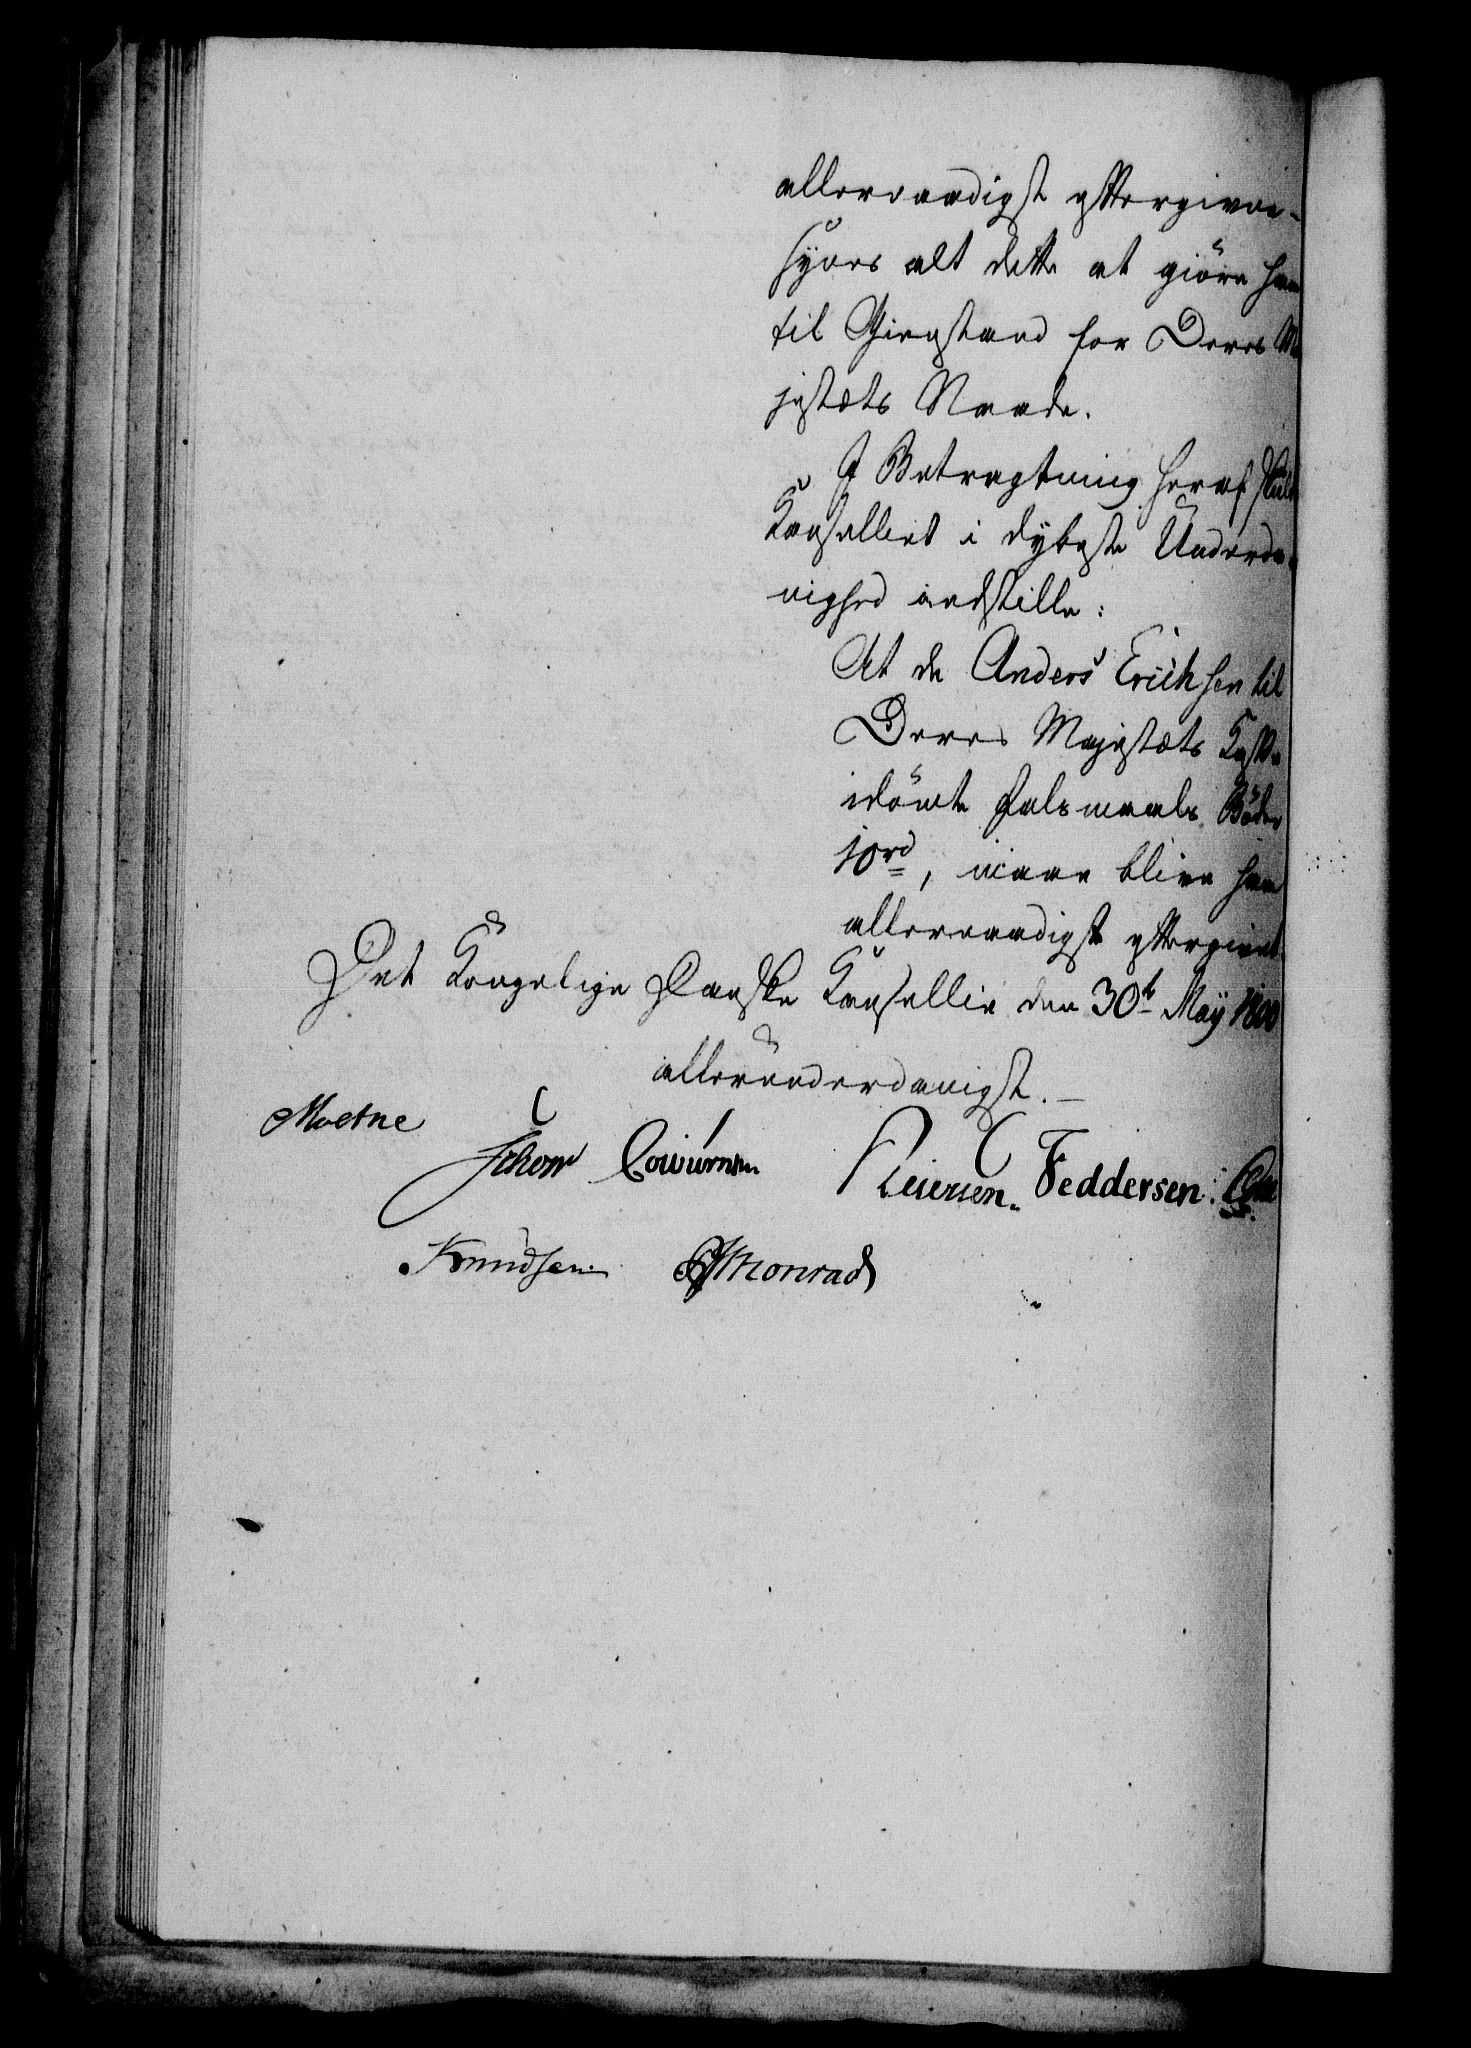 allernaadigst eftergiven
synes alt dette at giöre ham
til Gienstand for Deres Ma
jestæts Naade.
I Betragtning heraf skulde
Kancelliet i dybeste Underda-
nighed indstille:
At de Anders Erichsen til
Deres Majestæts Kasse
idömte Falsmaals Böder
10 rd, maae blive ham
allernaadigst eftergivet
Det Kongelige Danske Kancellie den 30t Maÿ 1800
allerunderdanigst.
Moestue
Schow Cold
Feddersen.
Knudsen Monrad